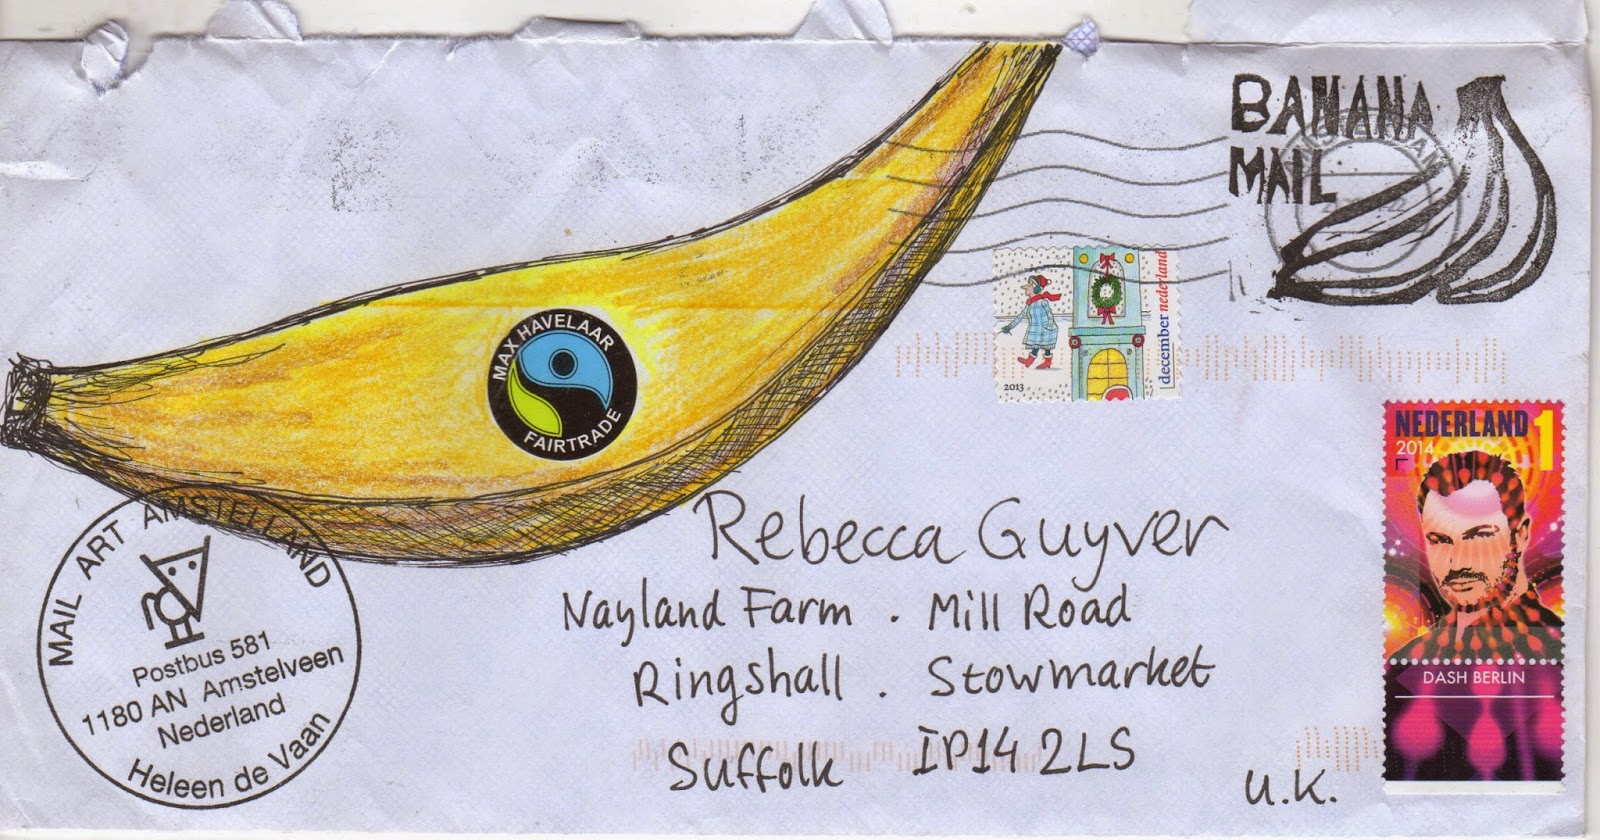 BANANA
MAIL
MAX HAVELAAR
FAIRTRADE
december nederland
2013
NEDERLAND 1
2014
DASH BERLIN
Rebecca Guyver
Nayland Farm . Mill Road
Ringshall . Stowmarket
Suffolk IP14 2LS
U.K.
MAIL ART AMSTELLAND
Postbus 581
1180 AN Amstelveen
Nederland
Heleen de Vaan